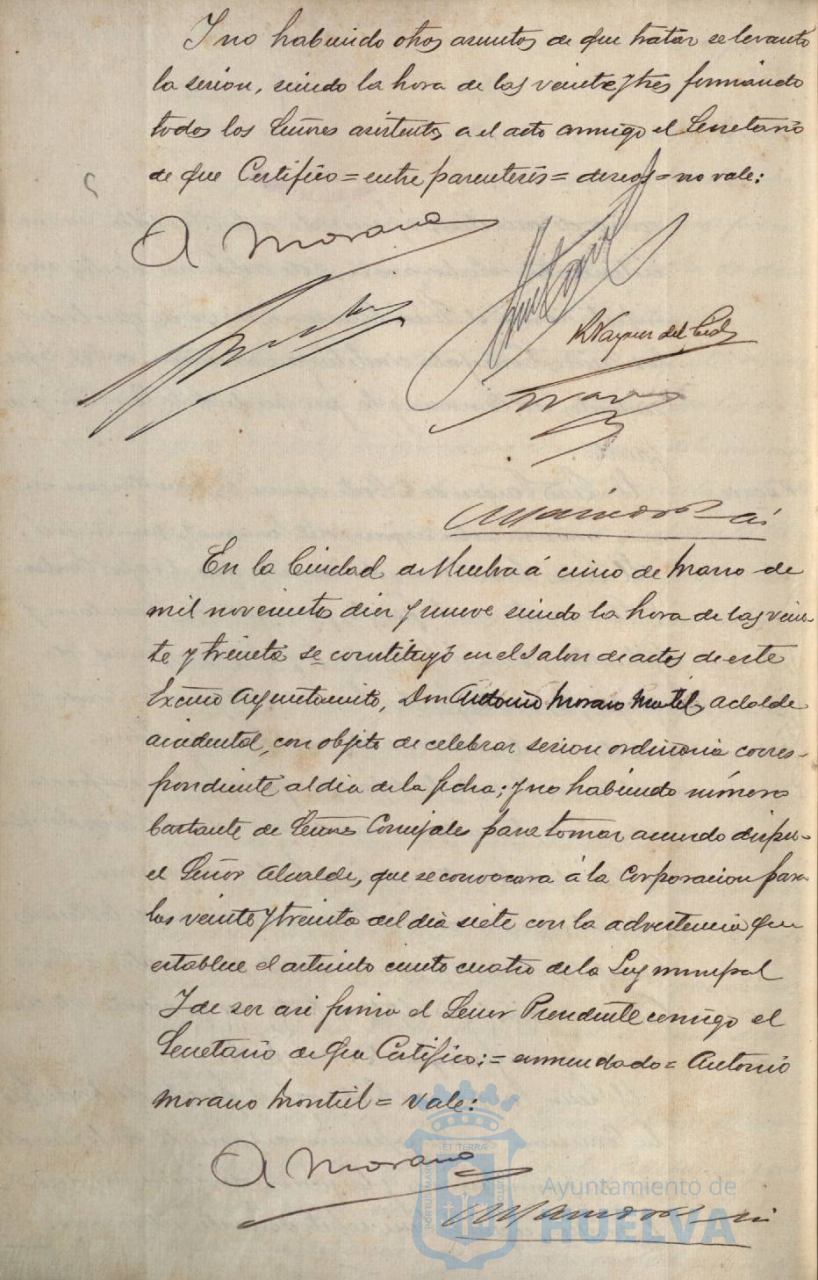 Y no habiendo otros asuntos de que tratar se levantó
la sesion, siendo la hora de las veinte y tres firmando
todos los Señores asistentes a el acto conmigo el Secretario
de que Certifico = entre parentesis = deseos = no vale:
A Morano
R Vazquez del
En la Ciudad de Huelva á cinco de Marzo de
mil novecientos diez y nueve siendo la hora de las vein-
te y treinta se constituyó en el Salon de actos de este
Excmo Ayuntamiento, Don Antonio Morano Montiel, alcalde
accidental, con objeto de celebrar sesion ordinaria corres-
pondiente al dia de la fecha; y no habiendo número
bastante de Señores Concejales para tomar acuerdo dispu-
el Señor Alcalde, que se convocara á la Corporacion para
las veinte y treinta del dia siete con la advertencia que
establece el articulo ciento cuatro de la Ley municipal
Y de ser asi firma el Señor Presidente conmigo el
Secretario de que Certifico: = enmendado = Antonio
Morano Montiel = Vale:
A Morano
Ayuntamiento de
HUELVA